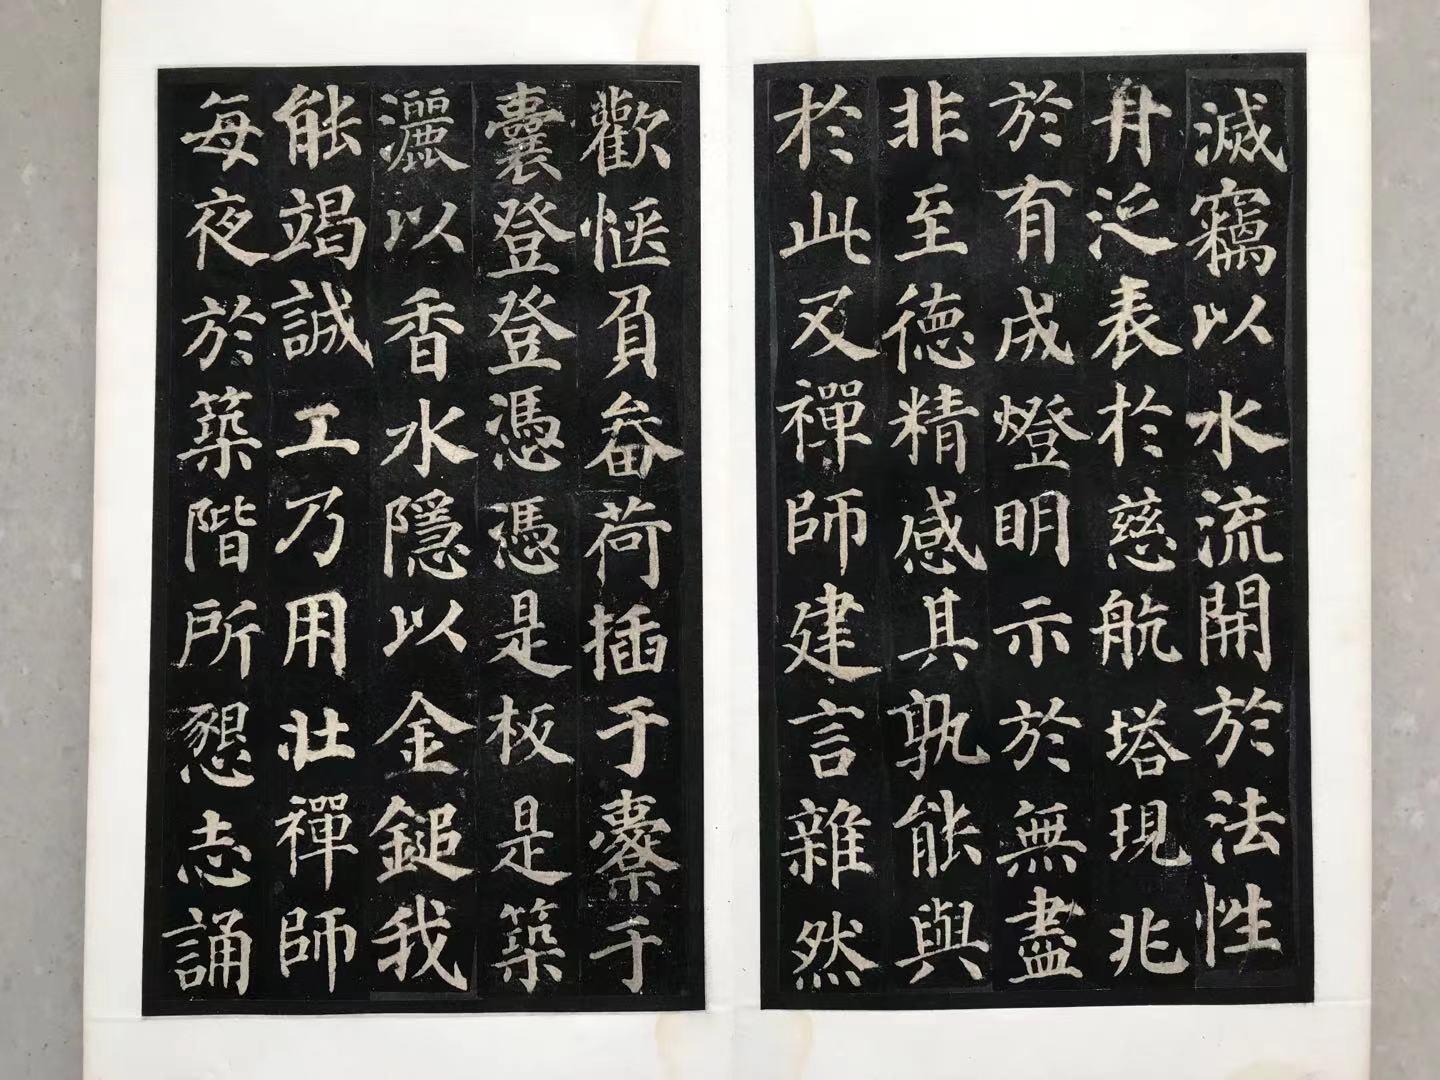 滅竊以水流開於法性
身泛表於慈航塔現兆
於有成燈明示於無盡
非至德精感其孰能與
於此及禪師建言雜然
歡愜負畚荷插于橐于
囊登登憑憑是板是築
灑以香水隱以金鎚我
能竭誠工乃用壯禪師
每夜於築階所懇志誦